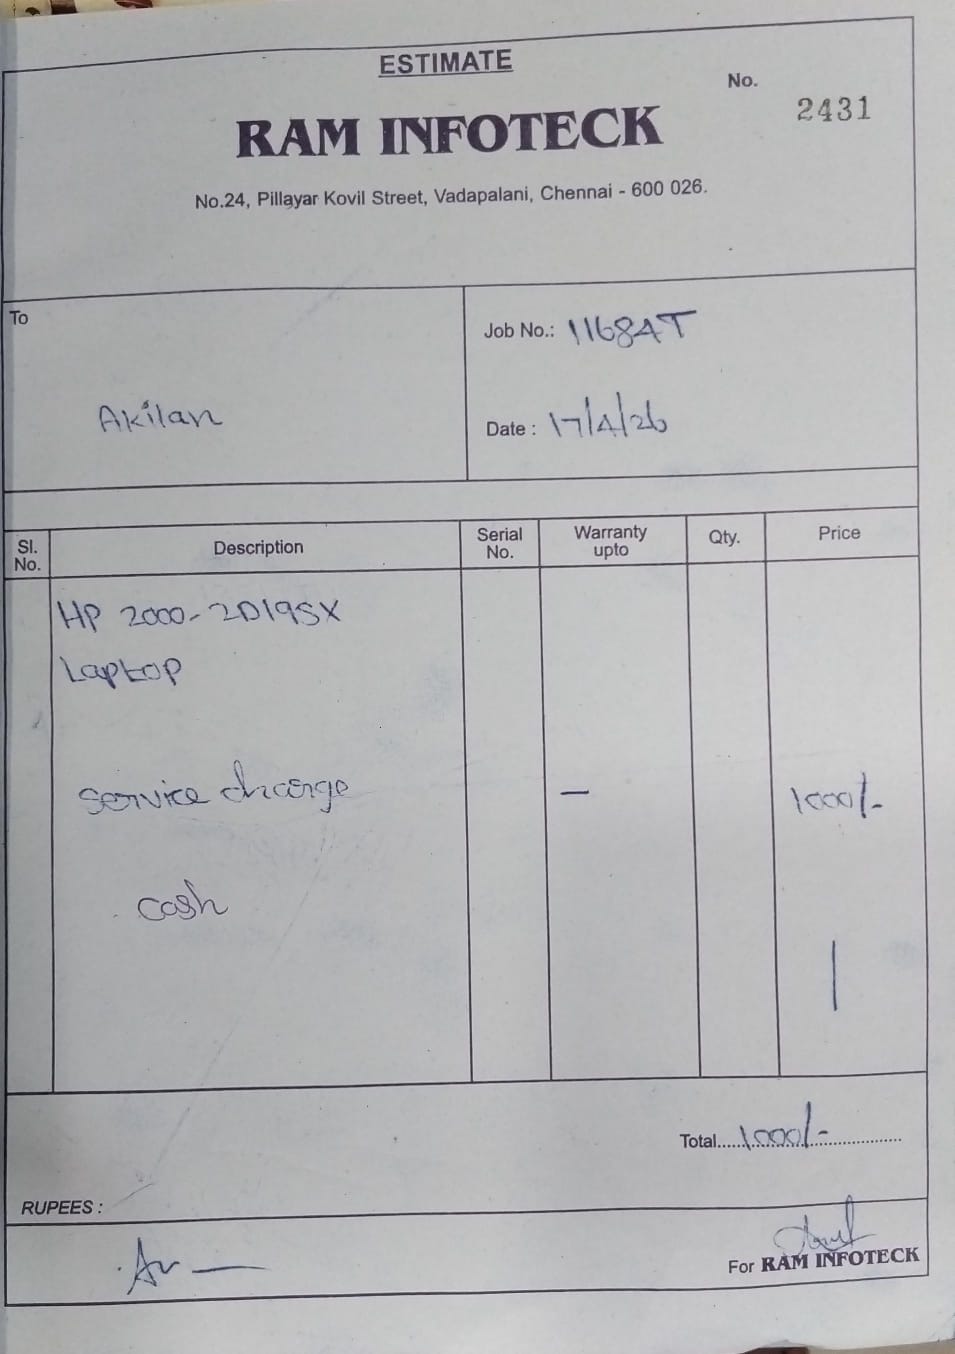 ESTIMATE
No.
2431
RAM INFOTECK
No.24, Pillayar Kovil Street, Vadapalani, Chennai - 600 026.
To
Akilan
Job No.: 11684T
Date : 17/4/26
Sl. No.
Description
Serial No.
Warranty upto
Qty.
Price
HP 2000-2D19SX
Laptop
Service charge
–
1000/-
Cash
Total......1000/-..............
RUPEES :
For RAM INFOTECK